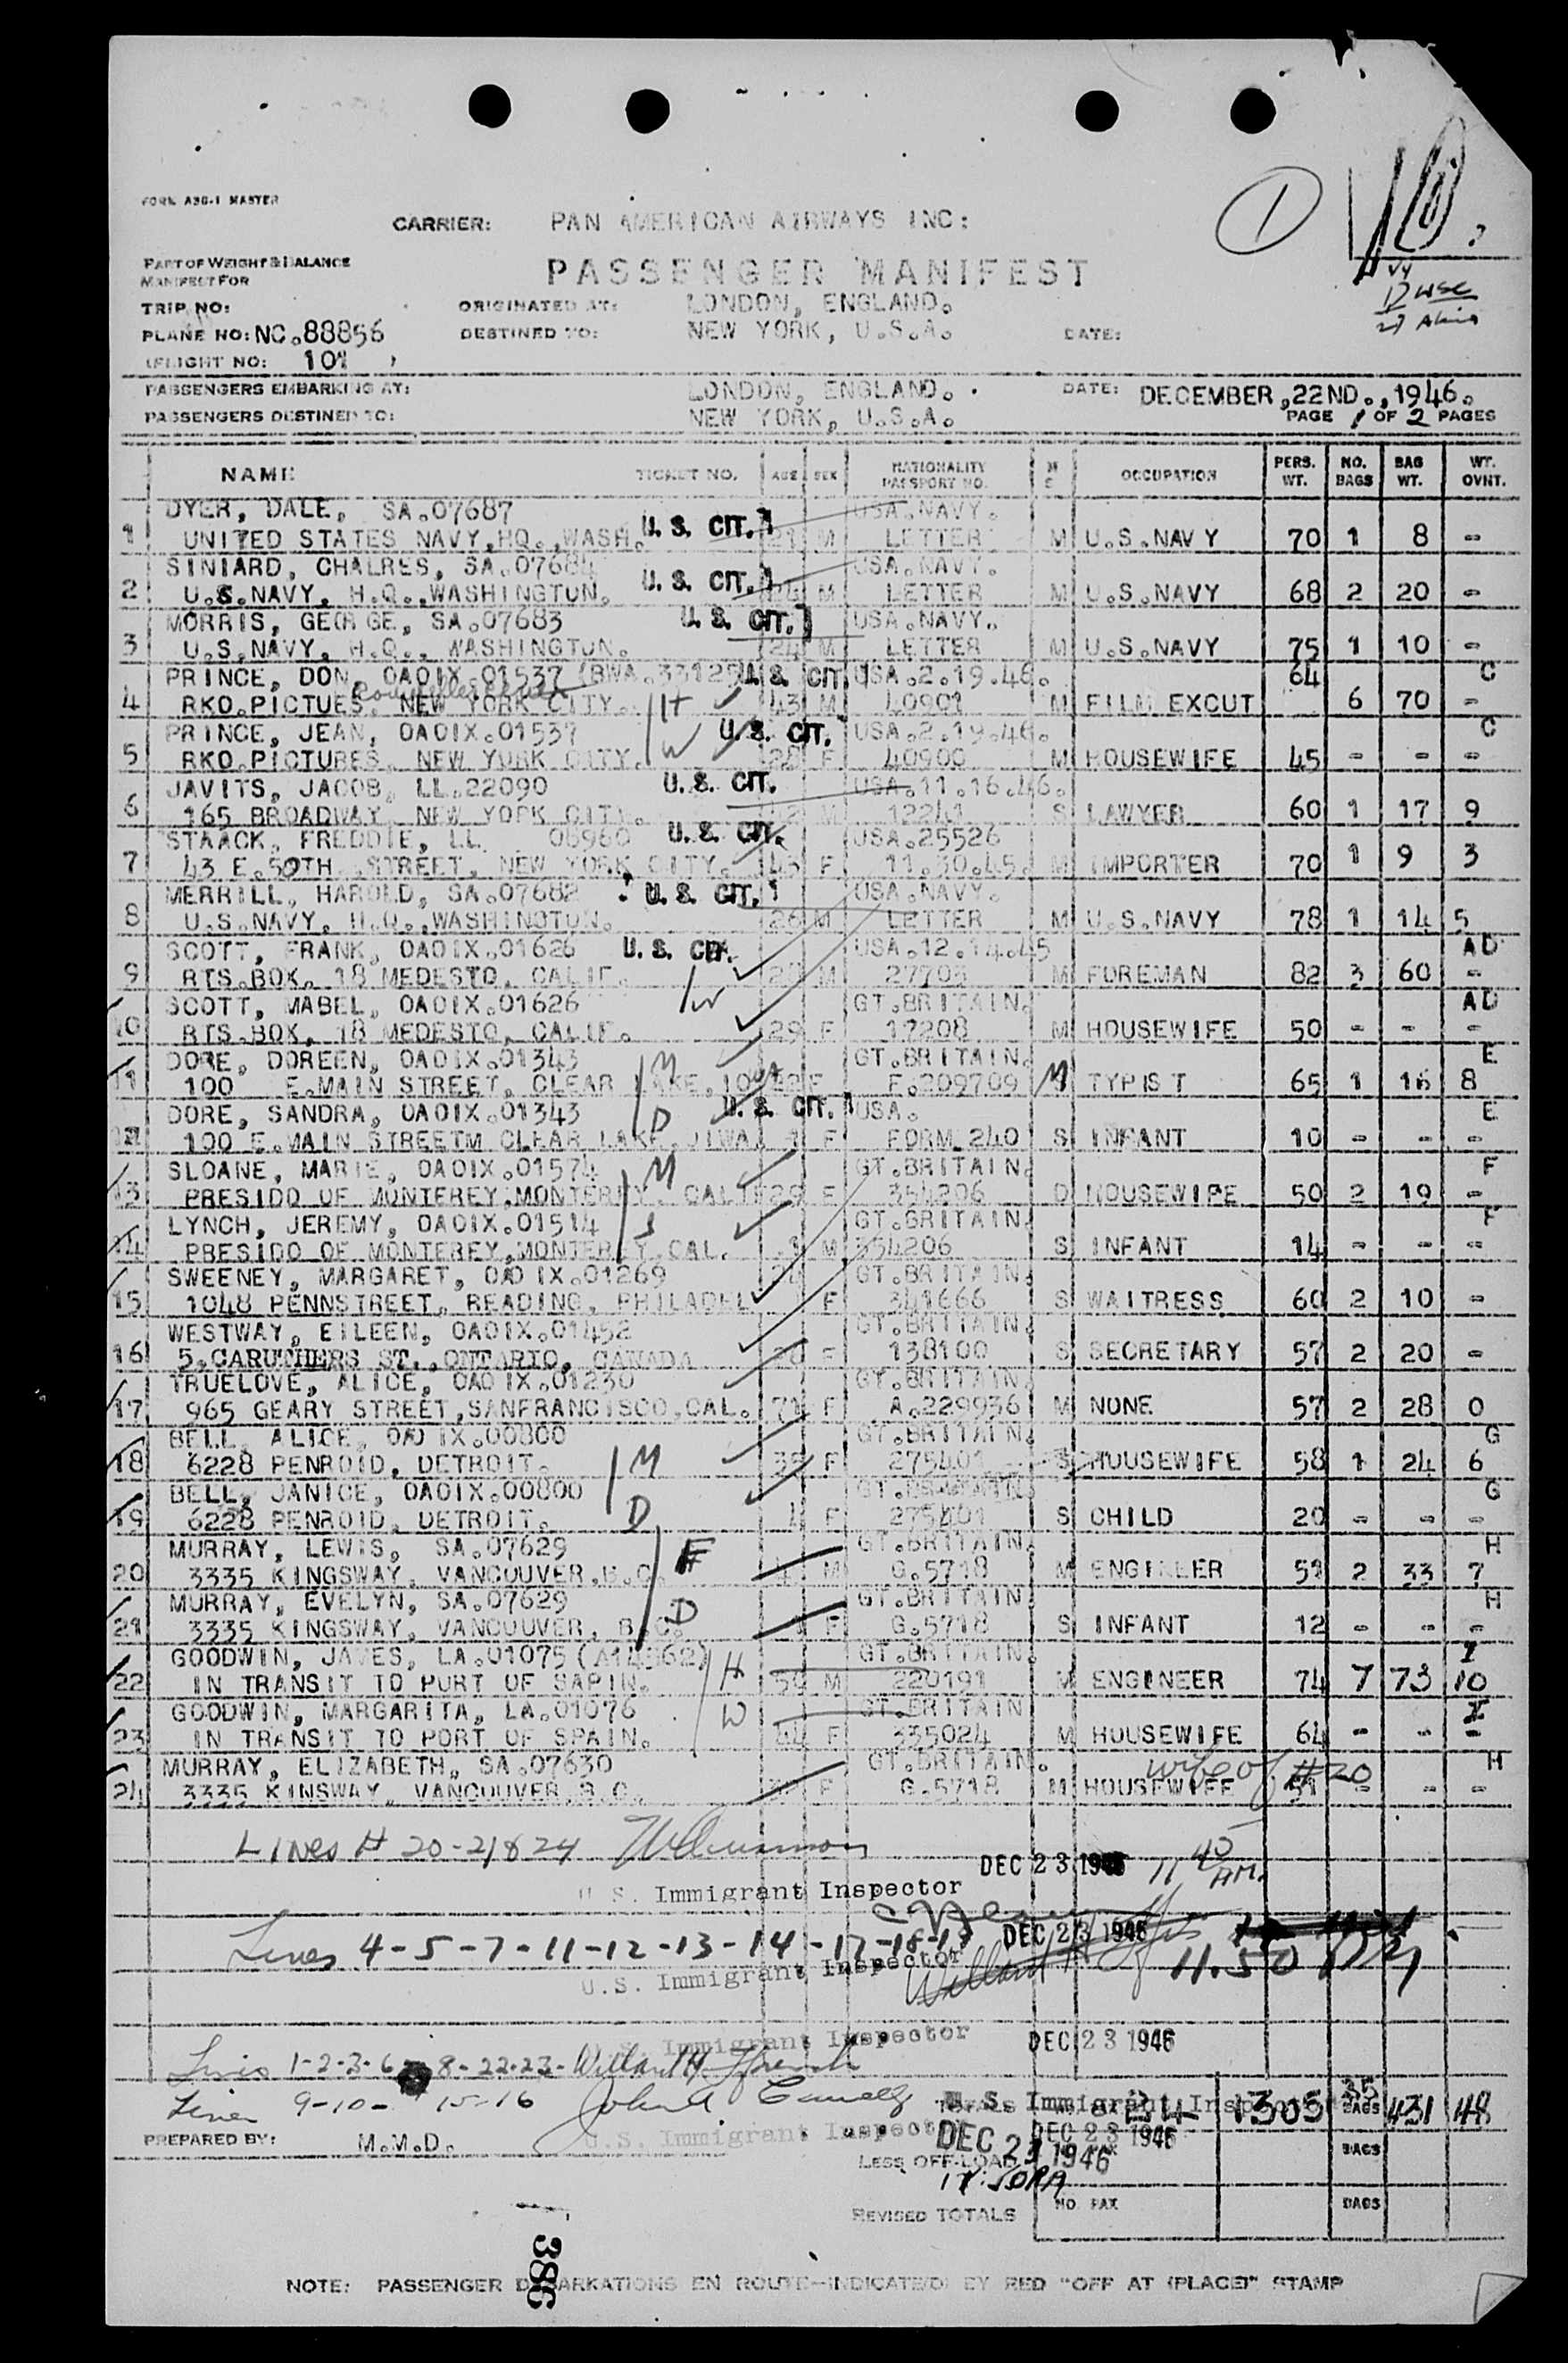 FORM A30-1 MASTER
CARRIER: PAN AMERICAN AIRWAYS INC:
1
PART OF WEIGHT & BALANCE
MANIFEST FOR
PASSENGER MANIFEST
TRIP NO: ORIGINATED AT: LONDON, ENGLAND.
PLANE NO: NC.88856 DESTINED TO: NEW YORK, U.S.A. DATE:
FLIGHT NO: 101
PASSENGERS EMBARKING AT: LONDON, ENGLAND. DATE: DECEMBER,22ND.,1946.
PASSENGERS DESTINED TO: NEW YORK, U.S.A. PAGE 1 OF 2 PAGES
NAME TICKET NO. AGE SEX NATIONALITY PASSPORT NO. OCCUPATION PERS. WT. NO. BAGS BAG WT. WT. OVNT.
DYER, DALE, SA.07687 U. S. CIT. USA.NAVY.
1 UNITED STATES NAVY,HQ.,WASH. 21 M LETTER M U.S.NAVY 70 1 8 -
SINIARD, CHALRES, SA.07684 U. S. CIT. USA.NAVY.
2 U.S.NAVY, H.Q.,WASHINGTON. 24 M LETTER M U.S.NAVY 68 2 20 -
MORRIS, GEORGE, SA.07683 U. S. CIT. USA.NAVY.
3 U.S.NAVY, H.Q., WASHINGTON. 24 M LETTER M U.S.NAVY 75 1 10 -
PRINCE, DON, OAOIX.01537 (BWA.33125) U. S. CIT. USA.2.19.46. 64 C
4 RKO.PICTUES. NEW YORK CITY. H 43 M 40901 M FILM EXCUT 6 70 -
PRINCE, JEAN, OAOIX.01537 U. S. CIT. USA.2.19.46. C
5 RKO.PICTURES, NEW YORK CITY. W 28 F 40900 M HOUSEWIFE 45 - - -
JAVITS, JACOB, LL.22090 U. S. CIT. USA.11.16.46.
6 165 BROADWAY, NEW YORK CITY. 42 M 12241 S LAWYER 60 1 17 9
STAACK, FREDDIE, LL 06960 U. S. CIT. USA.25526
7 43 E.50TH. STREET, NEW YORK CITY. 43 F 11.30.45. M IMPORTER 70 1 9 3
MERRILL, HAROLD, SA.07682 U. S. CIT. USA.NAVY.
8 U.S.NAVY, H.Q.,WASHINGTON. 26 M LETTER M U.S.NAVY 78 1 14 5
SCOTT, FRANK, OAOIX.01626 U. S. CIT. USA.12.14.45 AD
9 RTS.BOX, 18 MEDESTO, CALIF. M M FOREMAN 82 3 60 -
SCOTT, MABEL, OAOIX.01626 W GT.BRITAIN. AD
10 RTS.BOX, 18 MEDESTO, CALIF. 29 F 17208 M HOUSEWIFE 50 - - -
DORE, DOREEN, OAOIX.01343 M GT.BRITAIN. E
11 100 E.MAIN STREET, CLEAR LAKE, F F.209709 M TYPIST 65 1 16 8
DORE, SANDRA, OAOIX.01343 D U. S. CIT. USA. E
12 100 E.MAIN STREETM CLEAR LAKE, JIWA. 1 F FORM 240 S INFANT 10 - - -
SLOANE, MARIE, OAOIX.01574 M GT.BRITAIN. F
13 PRESIDO OF MONTEREY,MONTEREY, CALIF 29 F 354206 D HOUSEWIFE 50 2 19 -
LYNCH, JEREMY, OAOIX.01514 S GT.BRITAIN. F
14 PRESIDO OF MONTEREY,MONTEREY.CAL. M 354206 S INFANT 14 - - -
SWEENEY, MARGARET, OAOIX.01269 GT.BRITAIN.
15 1048 PENNSTREET, READING, PHILADEL F 341666 S WAITRESS 60 2 10 -
WESTWAY, EILEEN, OAOIX.01452 GT.BRITAIN.
16 5.CARUTHERS ST.,ONTARIO, CANADA F 138100 S SECRETARY 57 2 20 -
TRUELOVE, ALICE, OAOIX.01230 GT.BRITAIN.
17 965 GEARY STREET,SANFRANCISCO,CAL. 71 F A.229936 M NONE 57 2 28 0
BELL, ALICE, OAOIX.00800 GT.BRITAIN. G
18 6228 PENROID, DETROIT. M 35 F 275401 S HOUSEWIFE 58 1 24 6
BELL, JANICE, OAOIX.00800 GT.BRITAIN. G
19 6228 PENROID, DETROIT. D 4 F 275401 S CHILD 20 - - -
MURRAY, LEWIS, SA.07629 F GT.BRITAIN. H
20 3335 KINGSWAY, VANCOUVER.B.C. M G.5718 M ENGINEER 59 2 33 7
MURRAY, EVELYN, SA.07629 D GT.BRITAIN. H
21 3335 KINGSWAY, VANCOUVER, B.C. F G.5718 S INFANT 12 - - -
GOODWIN, JAMES, LA.01075 H GT.BRITAIN. I
22 IN TRANSIT TO PORT OF SAPIN. M 220191 M ENGINEER 74 7 73 10
GOODWIN, MARGARITA, LA.01076 W GT.BRITAIN I
23 IN TRANSIT TO PORT OF SPAIN. 44 F 335024 M HOUSEWIFE 64 - - -
MURRAY, ELIZABETH, SA.07630 GT.BRITAIN. wife of #20 H
24 3335 KINSWAY, VANCOUVER.B.C. F G.5718 M HOUSEWIFE 51 - - -
Lines # 20-21&24
DEC 23 1946 11 40 AM.
U. S. Immigrant Inspector
Lines 4-5-7-11-12-13-14-17-18-19 DEC 23 1946
U.S. Immigrant Inspector 11.50
U. S. Immigrant Inspector DEC 23 1946
Lines 1-2-3-6 8-22-23- Willard H.
Lines 9-10- 15-16 John A
U. S. Immigrant Inspector
TOTALS 24 1305 35 BAGS 431 48
PREPARED BY: M.M.D. U.S. Immigrant Inspector DEC 23 1946
DEC 23 1946 BAGS
LESS OFF-LOAD
REVISED TOTALS NO. PAX BAGS
386
NOTE: PASSENGER DEBARKATIONS EN ROUTE-INDICATED BY RED "OFF AT (PLACE)" STAMP